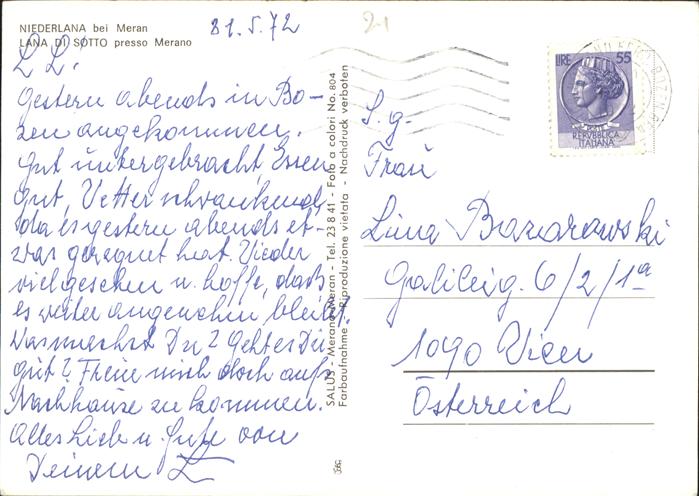 NIEDERLANA bei Meran
LANA DI SOTTO presso Merano
31.5.72
21
L L!
Gestern abends in Bo-
zen angekommen.
Gut untergebracht, Essen
gut, Wetter schwankend,
da es gestern abends et-
was geregnet hat. Wieder
viel gesehen u. hoffe, daß
es weiter angenehm bleibt.
Was machst Du? Geht es Dir
gut? Freue mich doch aufs
Nachhause zu kommen.
Alles Lieb u. Gute von
Deinem L
SALUS - Merano-Meran - Tel. 23 8 41 - Foto a colori No. 804
Farbaufnahme - Riproduzione vietata - Nachdruck verboten
LIRE 55
POSTE
REPVBBLICA
ITALIANA
S. g.
Frau
Lina Bazarowski
Galileig. 6/2/1a
1090 Wien
Österreich